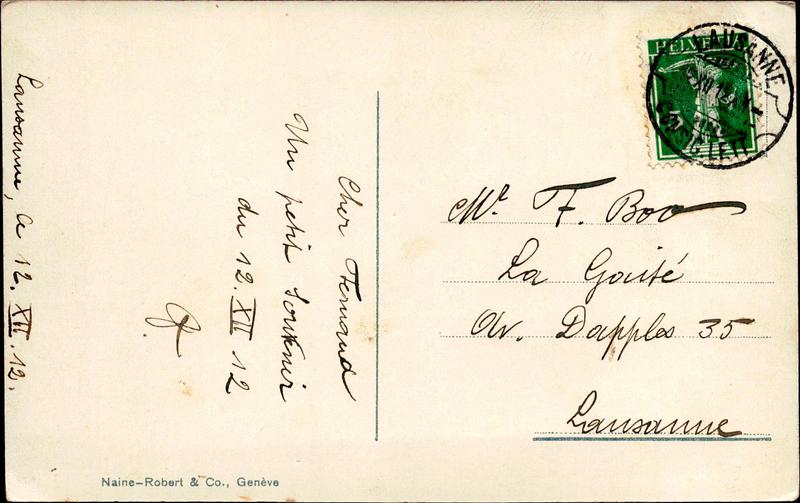 Lausanne, le 12. XII. 12.
Cher Fernand
Un petit souvenir
du 12. XII 12
Mr. F. Boo
La Gaité
Av. Dapples 35
Lausanne
HELVETIA
LAUSANNE
Naine-Robert & Co., Genève